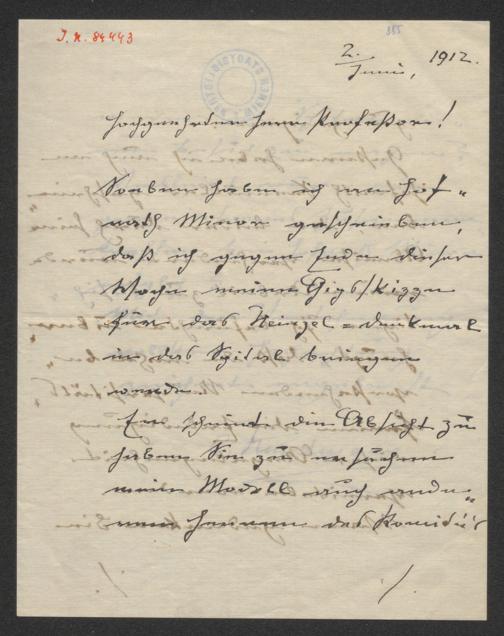 J. N. 84443
385
2. Juni, 1912.
Hochgeehrter Herr Professor!
Soeben habe ich an Hof-
rath Minor geschrieben,
daß ich gegen Ende dieser
Woche meine Gipsskizze
für das Heinzel-Denkmal
in das Spital bringen
werde.
Er scheint die Absicht zu
haben Sie zu ersuchen
mein Modell auch ande-
ren Herren des Komités
./.